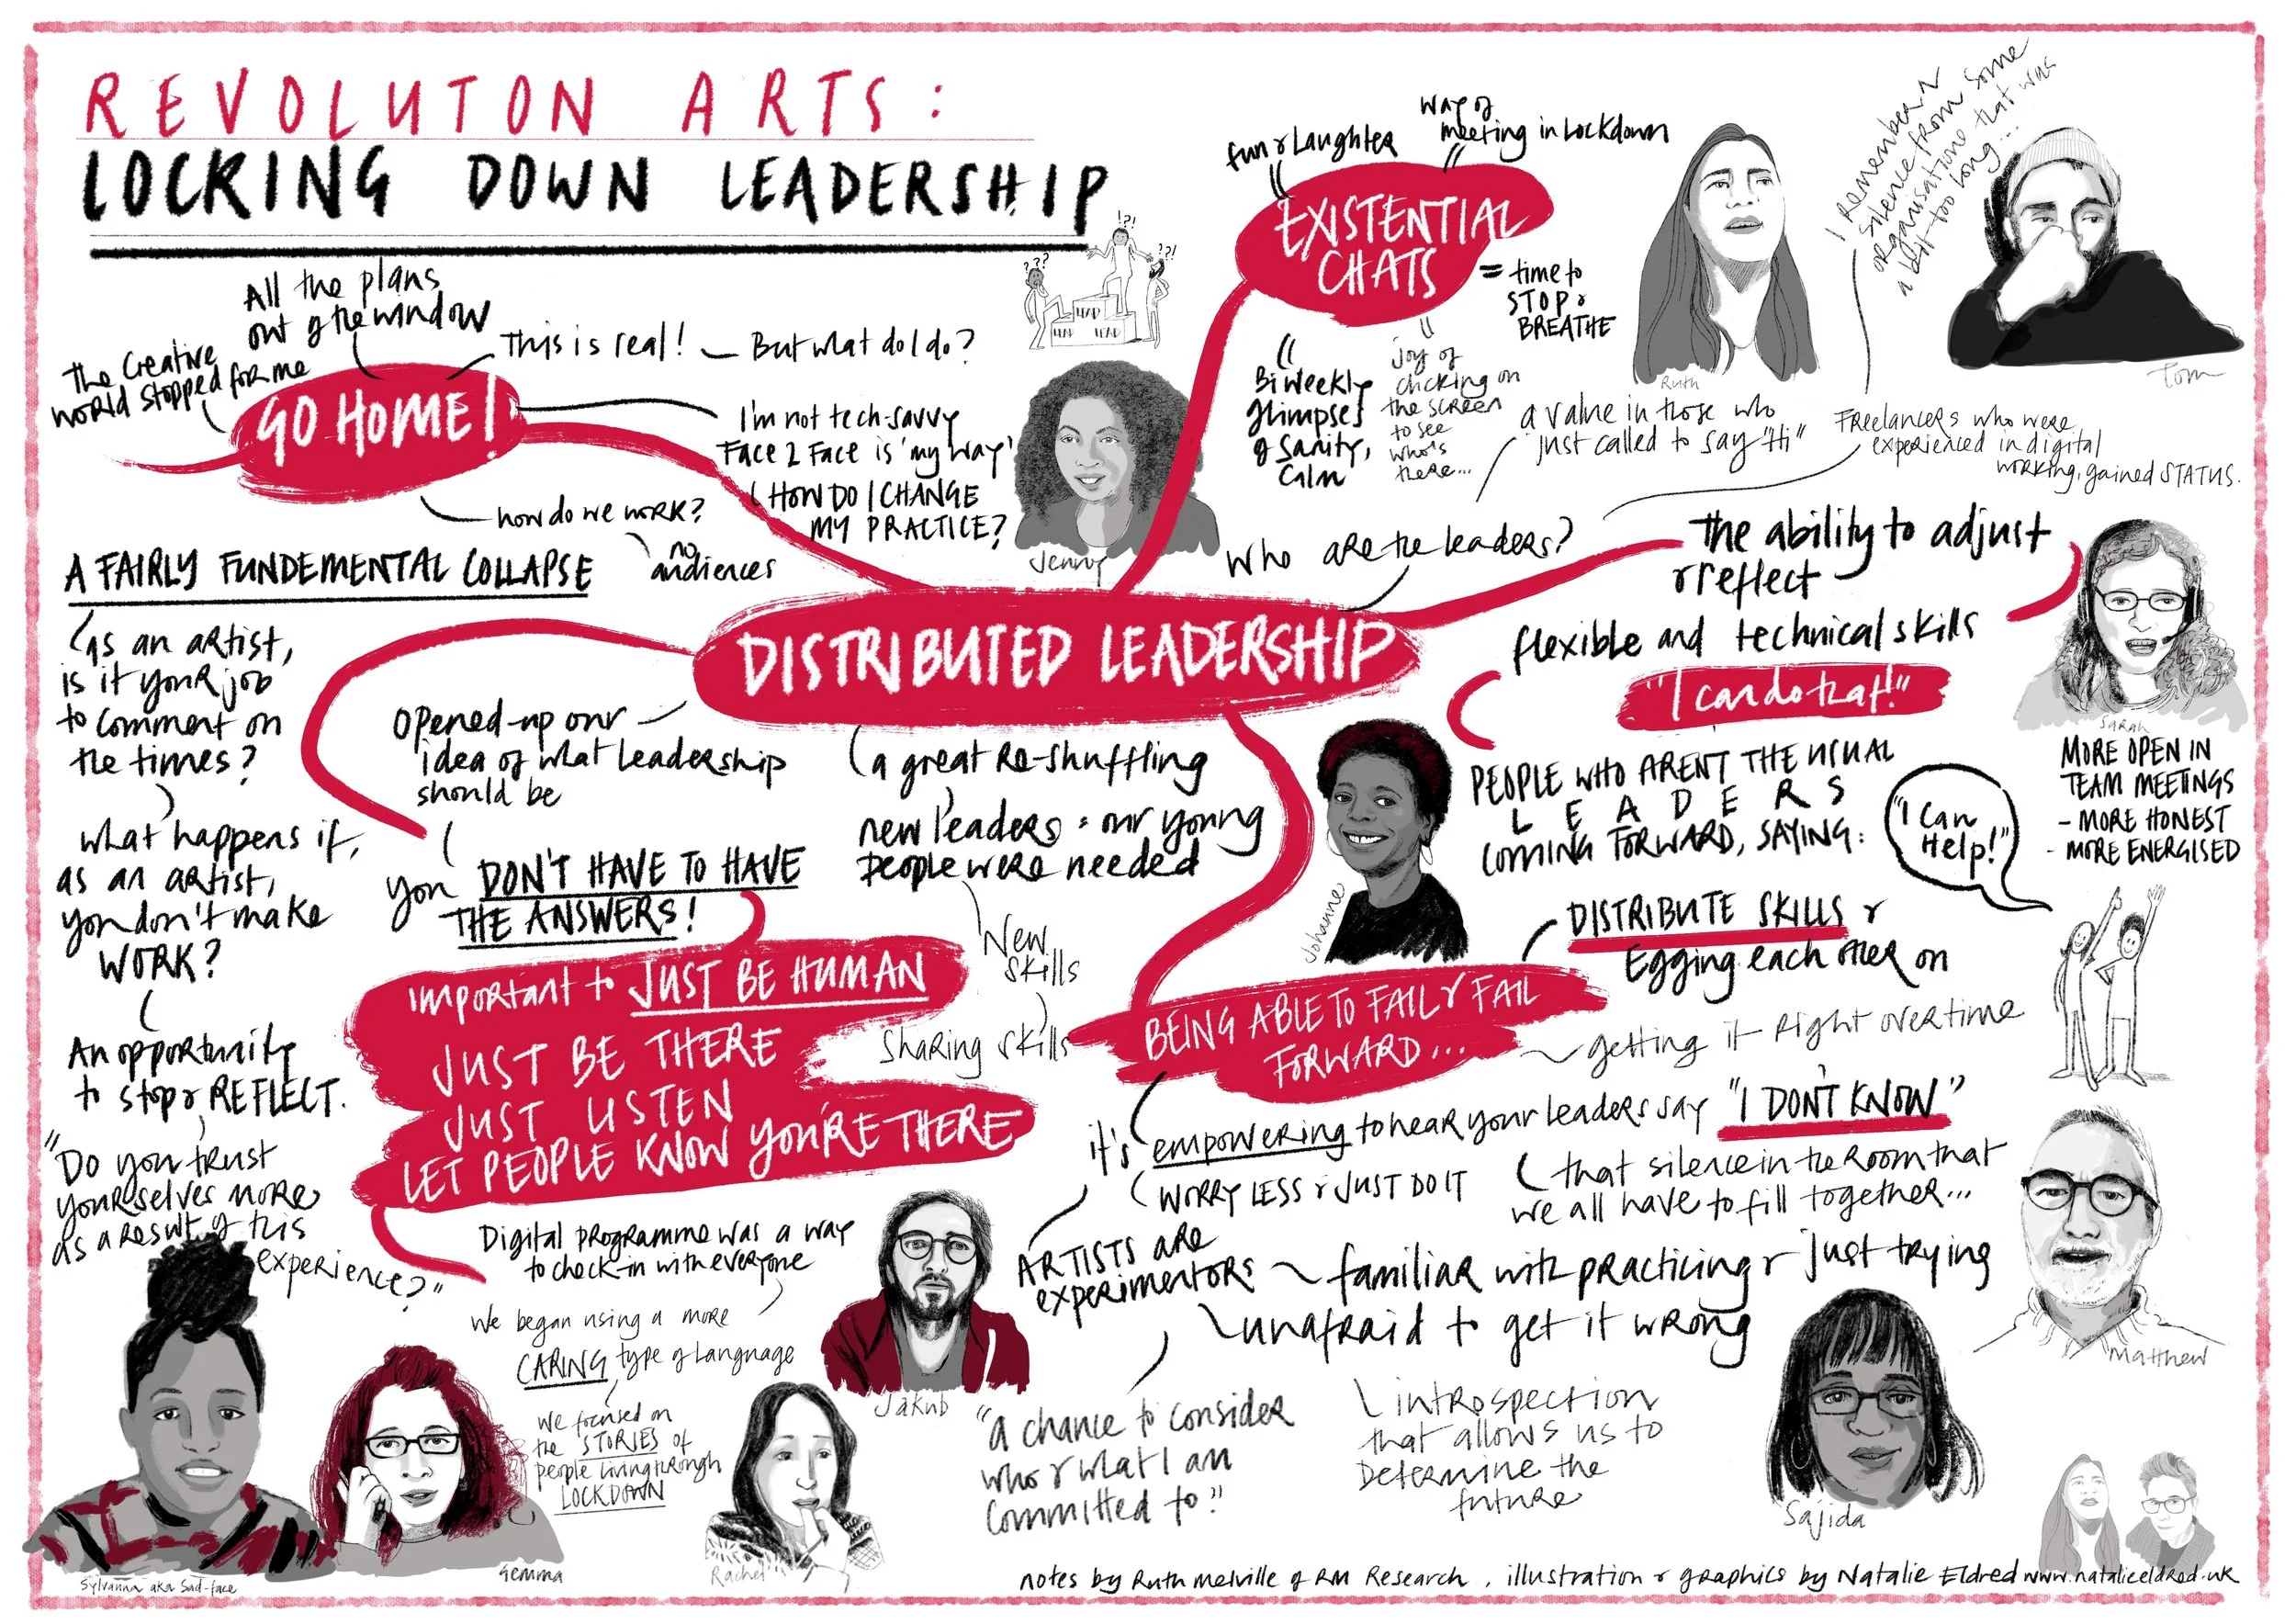 REVOLUTON ARTS:
LOCKING DOWN LEADERSHIP
All the plans
out of the window
The Creative
World stopped for me
GO HOME!
This is real!
But what do I do?
I'm not tech-savvy
Face 2 Face is 'my way'
HOW DO I CHANGE
MY PRACTICE?
how do we work?
no
audiences
???
?!?!
??!
LEAD
LEAD
LEAD
Jenny
fun & Laughter
way of
meeting in Lockdown
EXISTENTIAL
CHATS
= time to
STOP &
BREATHE
Bi weekly
glimpses
of sanity,
calm
joy of
clicking on
the screen
to see
who's
there...
Ruth
I remember a
silence from some
organisations that was
a bit too long...
Tom
a value in those who
just called to say "Hi"
Freelancers who were
experienced in digital
working, gained STATUS.
Who are the leaders?
DISTRIBUTED LEADERSHIP
the ability to adjust
& reflect
flexible and technical skills
"I can do that!"
Sarah
PEOPLE WHO ARENT THE USUAL
LEADERS
COMING FORWARD, SAYING:
"I Can
Help!"
MORE OPEN IN
TEAM MEETINGS
- MORE HONEST
- MORE ENERGISED
Johanne
A FAIRLY FUNDEMENTAL COLLAPSE
as an artist,
is it your job
to comment on
the times?
what happens if,
as an artist,
you don't make
WORK?
An opportunity
to stop & REFLECT.
"Do you trust
yourselves more
as a result of this
experience?"
Opened-up our
idea of what leadership
should be
you DON'T HAVE TO HAVE
THE ANSWERS!
important to JUST BE HUMAN
JUST BE THERE
JUST LISTEN
LET PEOPLE KNOW YOU'RE THERE
a great Re-shuffling
new leaders = our young
people were needed
New
skills
Sharing skills
BEING ABLE TO FAIL & FAIL
FORWARD...
DISTRIBUTE SKILLS &
Egging each other on
getting it right overtime
it's empowering to hear your leaders say "I DON'T KNOW"
WORRY LESS & JUST DO IT
that silence in the room that
we all have to fill together...
ARTISTS are
experimentors
familiar with practicing & just trying
unafraid to get it wrong
"a chance to consider
who & what I am
committed to"
introspection
that allows us to
Determine the
future
Matthew
Sajida
Digital programme was a way
to check-in with everyone
We began using a more
CARING type of Language
we focused on
the STORIES of
people living through
LOCKDOWN
Jakub
Sylvanna aka Sad-face
Gemma
Rachel
notes by Ruth Melville of RM Research, illustration & graphics by Natalie Eldred www.natalieeldred.uk